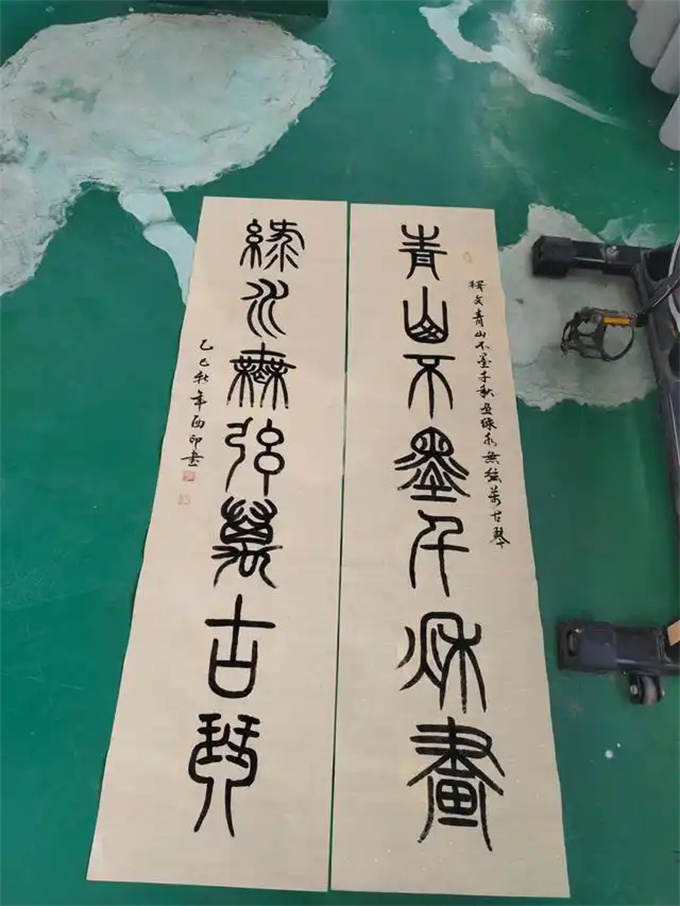 青山不墨千秋畫
釋文青山不墨千秋畫綠水無弦萬古琴
綠水無弦萬古琴
乙巳秋年